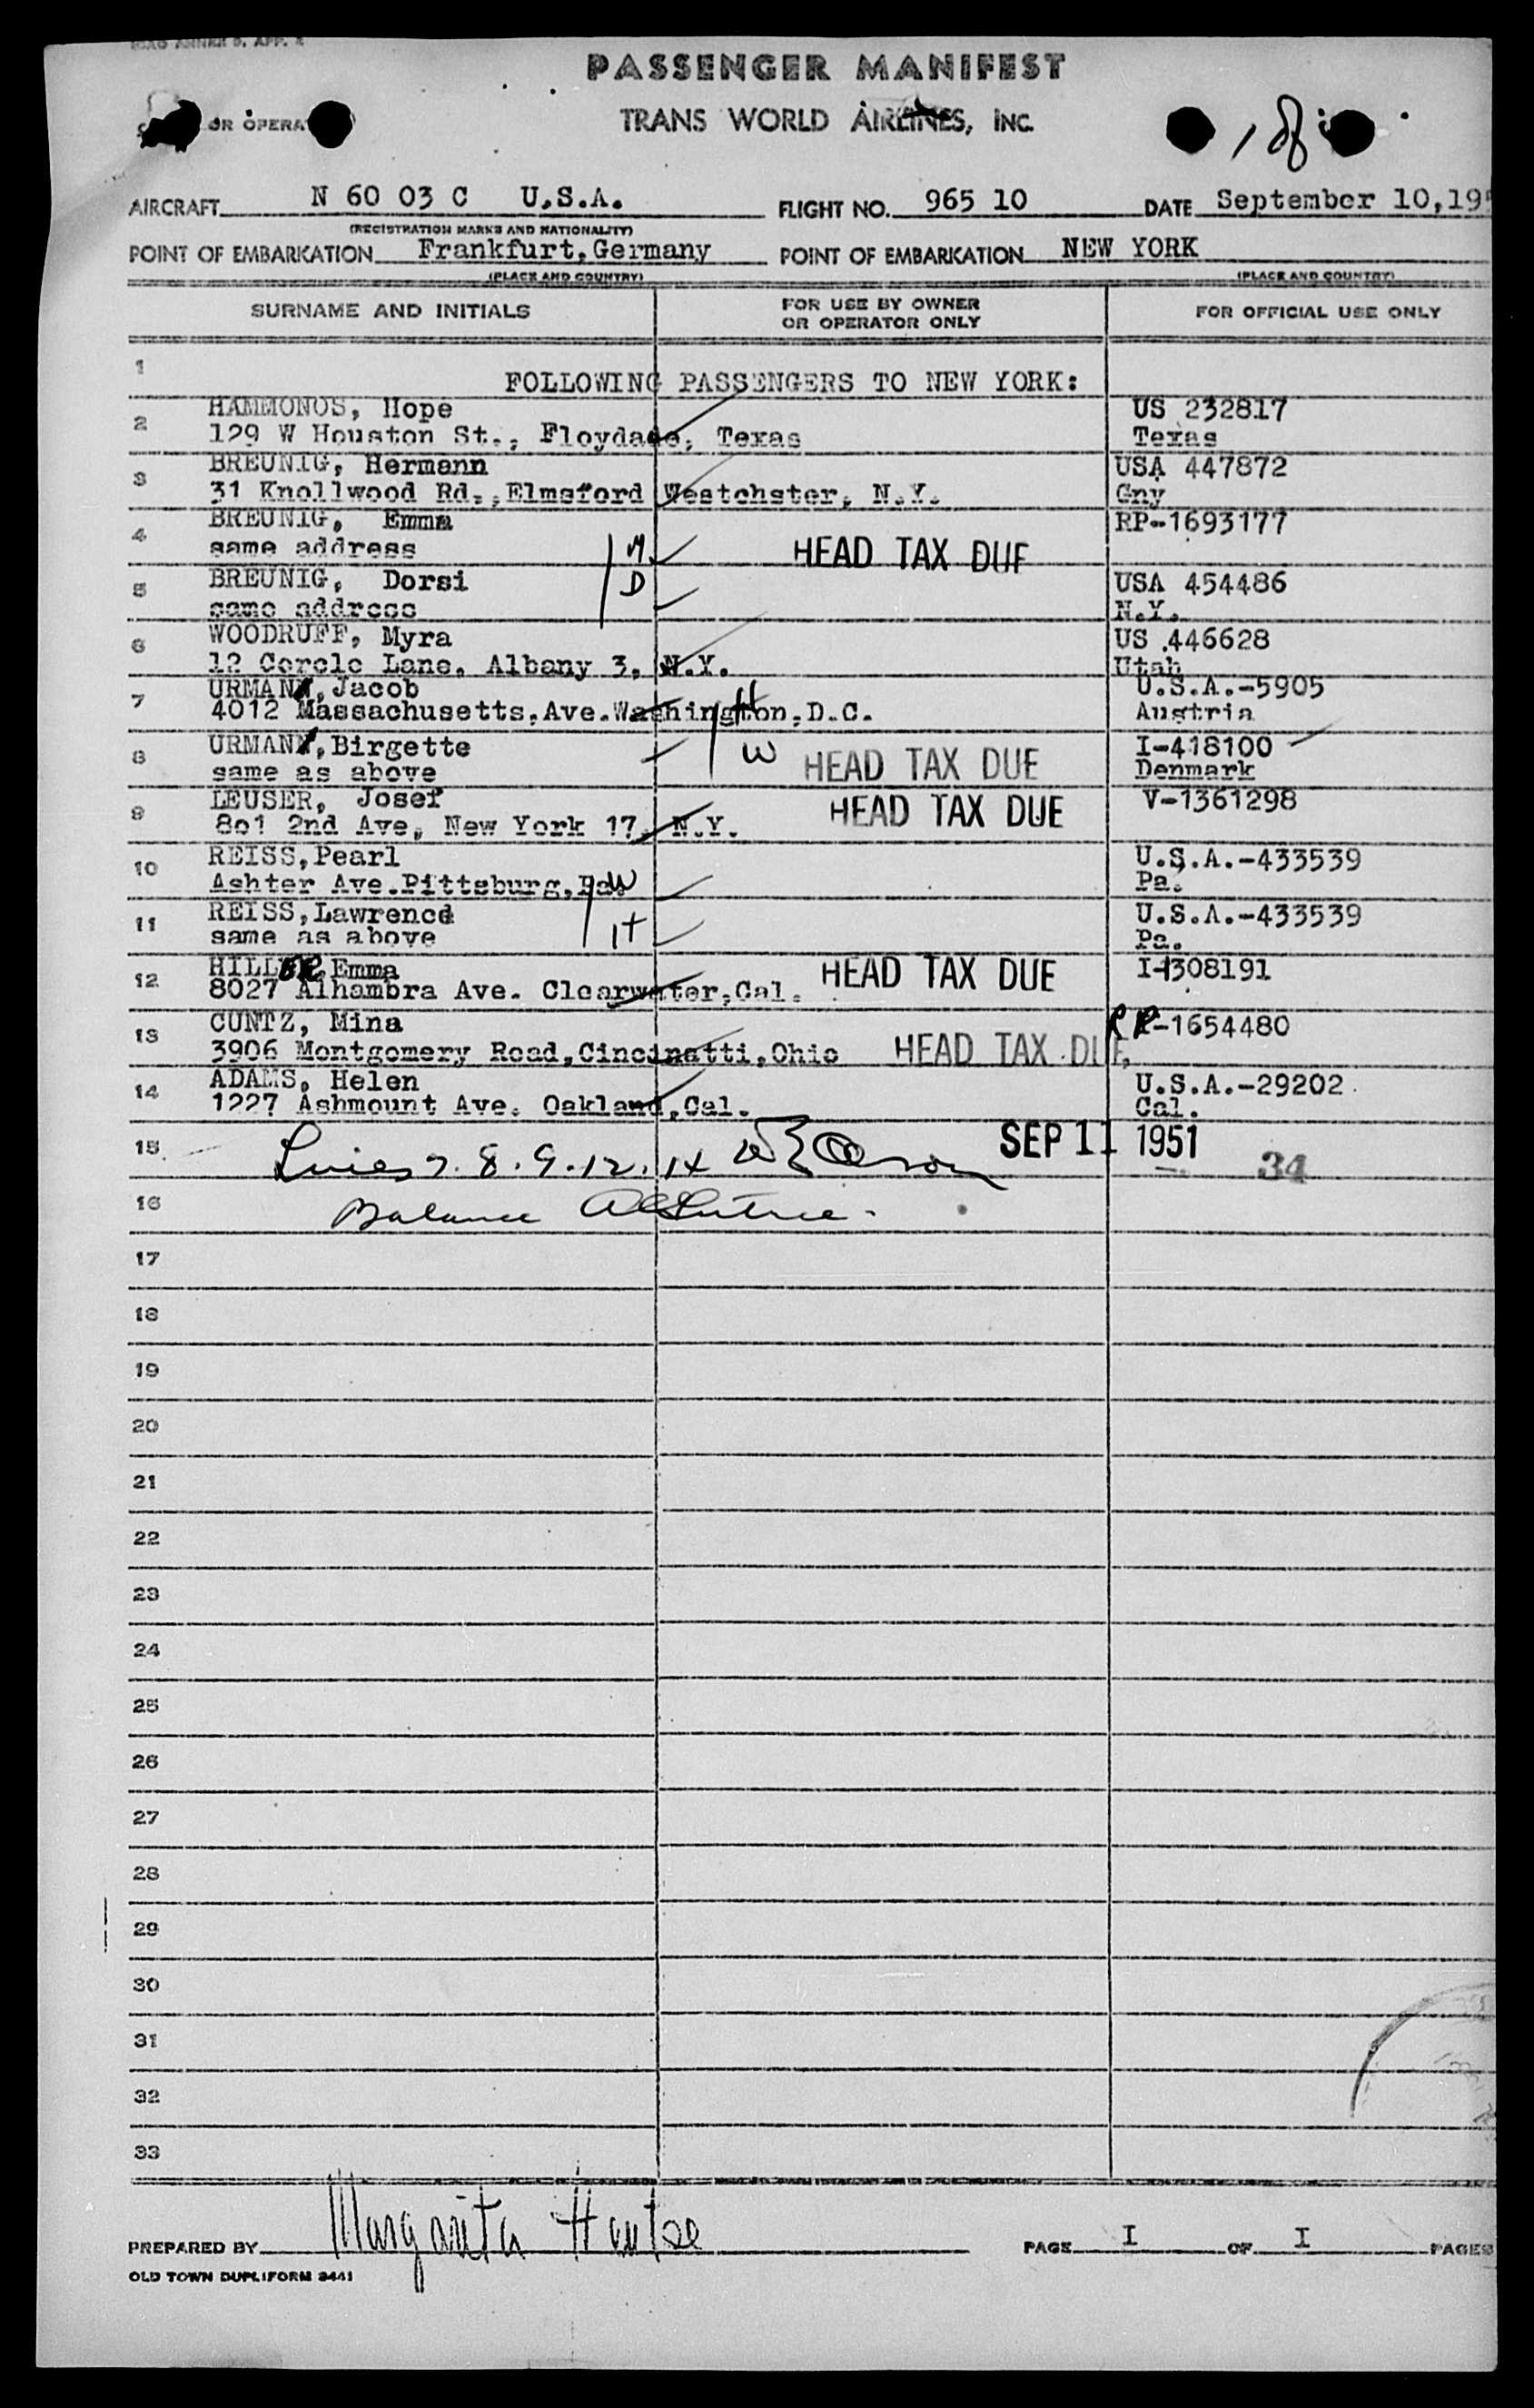 ICAO ANNEX 9, APP. 2
PASSENGER MANIFEST
OR OPERA
TRANS WORLD AIRLINES, INC.
AIRCRAFT N 60 03 C U.S.A. FLIGHT NO. 965 10 DATE September 10,19
(REGISTRATION MARKS AND NATIONALITY)
POINT OF EMBARKATION Frankfurt,Germany POINT OF EMBARKATION NEW YORK
(PLACE AND COUNTRY) (PLACE AND COUNTRY)
SURNAME AND INITIALS FOR USE BY OWNER OR OPERATOR ONLY FOR OFFICIAL USE ONLY
1 FOLLOWING PASSENGERS TO NEW YORK:
2 HAMMONOS, Hope US 232817
129 W Houston St., Floydade, Texas Texas
3 BREUNIG, Hermann USA 447872
31 Knollwood Rd.,Elmsford Westchster, N.Y. Gny
4 BREUNIG, Emma RP-1693177
same address M HEAD TAX DUE
5 BREUNIG, Dorsi D USA 454486
same address N.Y.
6 WOODRUFF, Myra US 446628
12 Cercle Lane, Albany 3, N.Y. Utah
7 URMAN, Jacob U.S.A.-5905
4012 Massachusetts,Ave.Washington,D.C. H Austria
8 URMAN,Birgette W HEAD TAX DUE I-418100
same as above Denmark
9 LEUSER, Josef HEAD TAX DUE V-1361298
801 2nd Ave, New York 17, N.Y.
10 REISS,Pearl U.S.A.-433539
Ashter Ave.Pittsburg,Pa. W Pa.
11 REISS,Lawrence U.S.A.-433539
same as above H Pa.
12 HILLER,Emma HEAD TAX DUE I-1308191
8027 Alhambra Ave. Clearwater,Cal.
13 CUNTZ, Mina RP-1654480
3906 Montgomery Road,Cincinatti,Ohio HEAD TAX DUE
14 ADAMS, Helen U.S.A.-29202
1227 Ashmount Ave. Oakland,Cal. Cal.
15 Lines 7. 8. 9. 12. 14 SEP 11 1951 34
16 Balance
17
18
19
20
21
22
23
24
25
26
27
28
29
30
31
32
33
PREPARED BY Margarita Hantse PAGE I OF I PAGES
OLD TOWN DUPLIFORM 3441